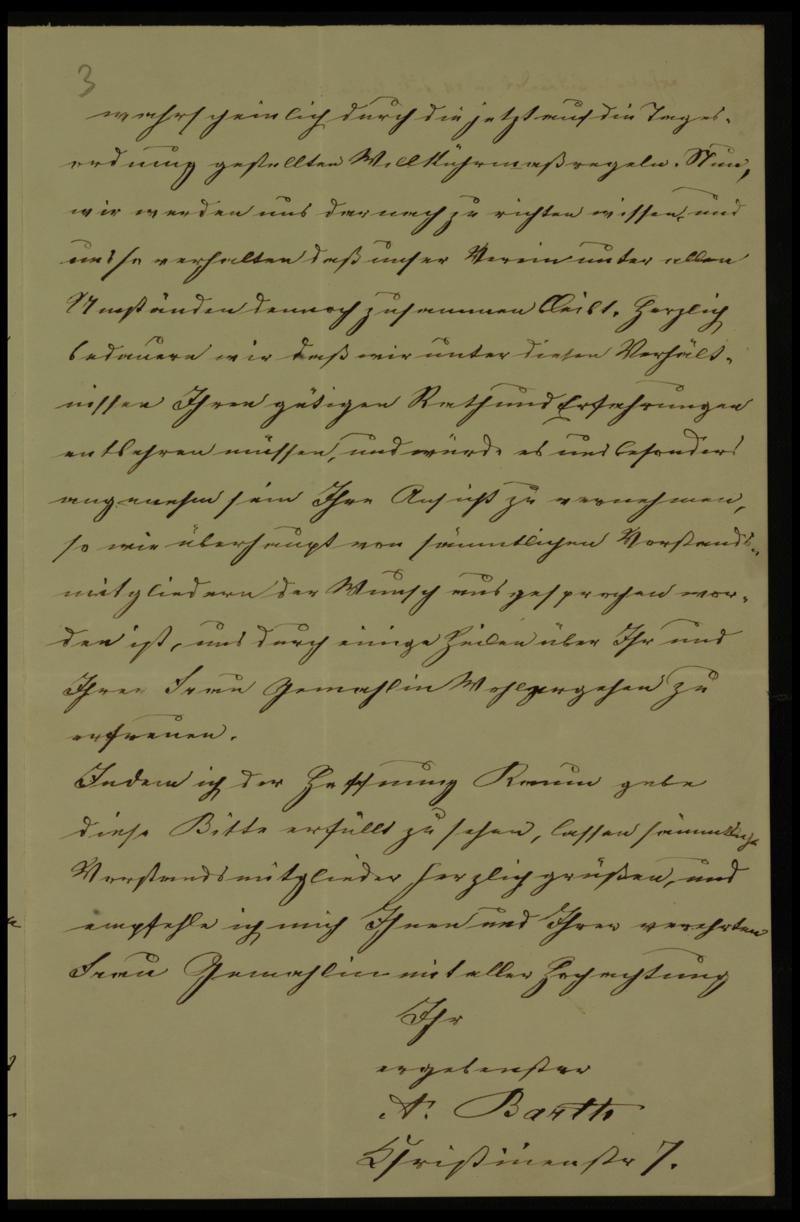 3
wahrscheinlich durch die jetzt auf die Tages-
ordnung gestellten Willkührmaßregeln. Nun,
wir werden uns darnach zu richten wissen, und
uns so verhalten daß unser Verein unter allen
Umständen dennoch zusammen bleibt. Herzlich
bedauern wir daß wir unter diesen Verhält-
nissen Ihren gütigen Rath und Erfahrungen
entbehren müssen, und würde es uns besonders
angenehm sein Ihre Ansicht zu vernehmen,
so wie überhaupt von sämmtlichen Vorstands-
mitgliedern der Wunsch ausgesprochen wor-
den ist, uns durch einige Zeilen über Ihr und
Ihrer Frau Gemahlin Wohlergehen zu
erfreuen.
Indem ich der Hoffnung Raum gebe
diese Bitte erfüllt zu sehen, lassen sämmtliche
Vorstandsmitglieder herzlich grüßen, und
empfehle ich mich Ihnen und Ihrer verehrten
Frau Gemahlin mit aller Hochachtung
Ihr
ergebenster
A. Barth
Christinenstr 7.